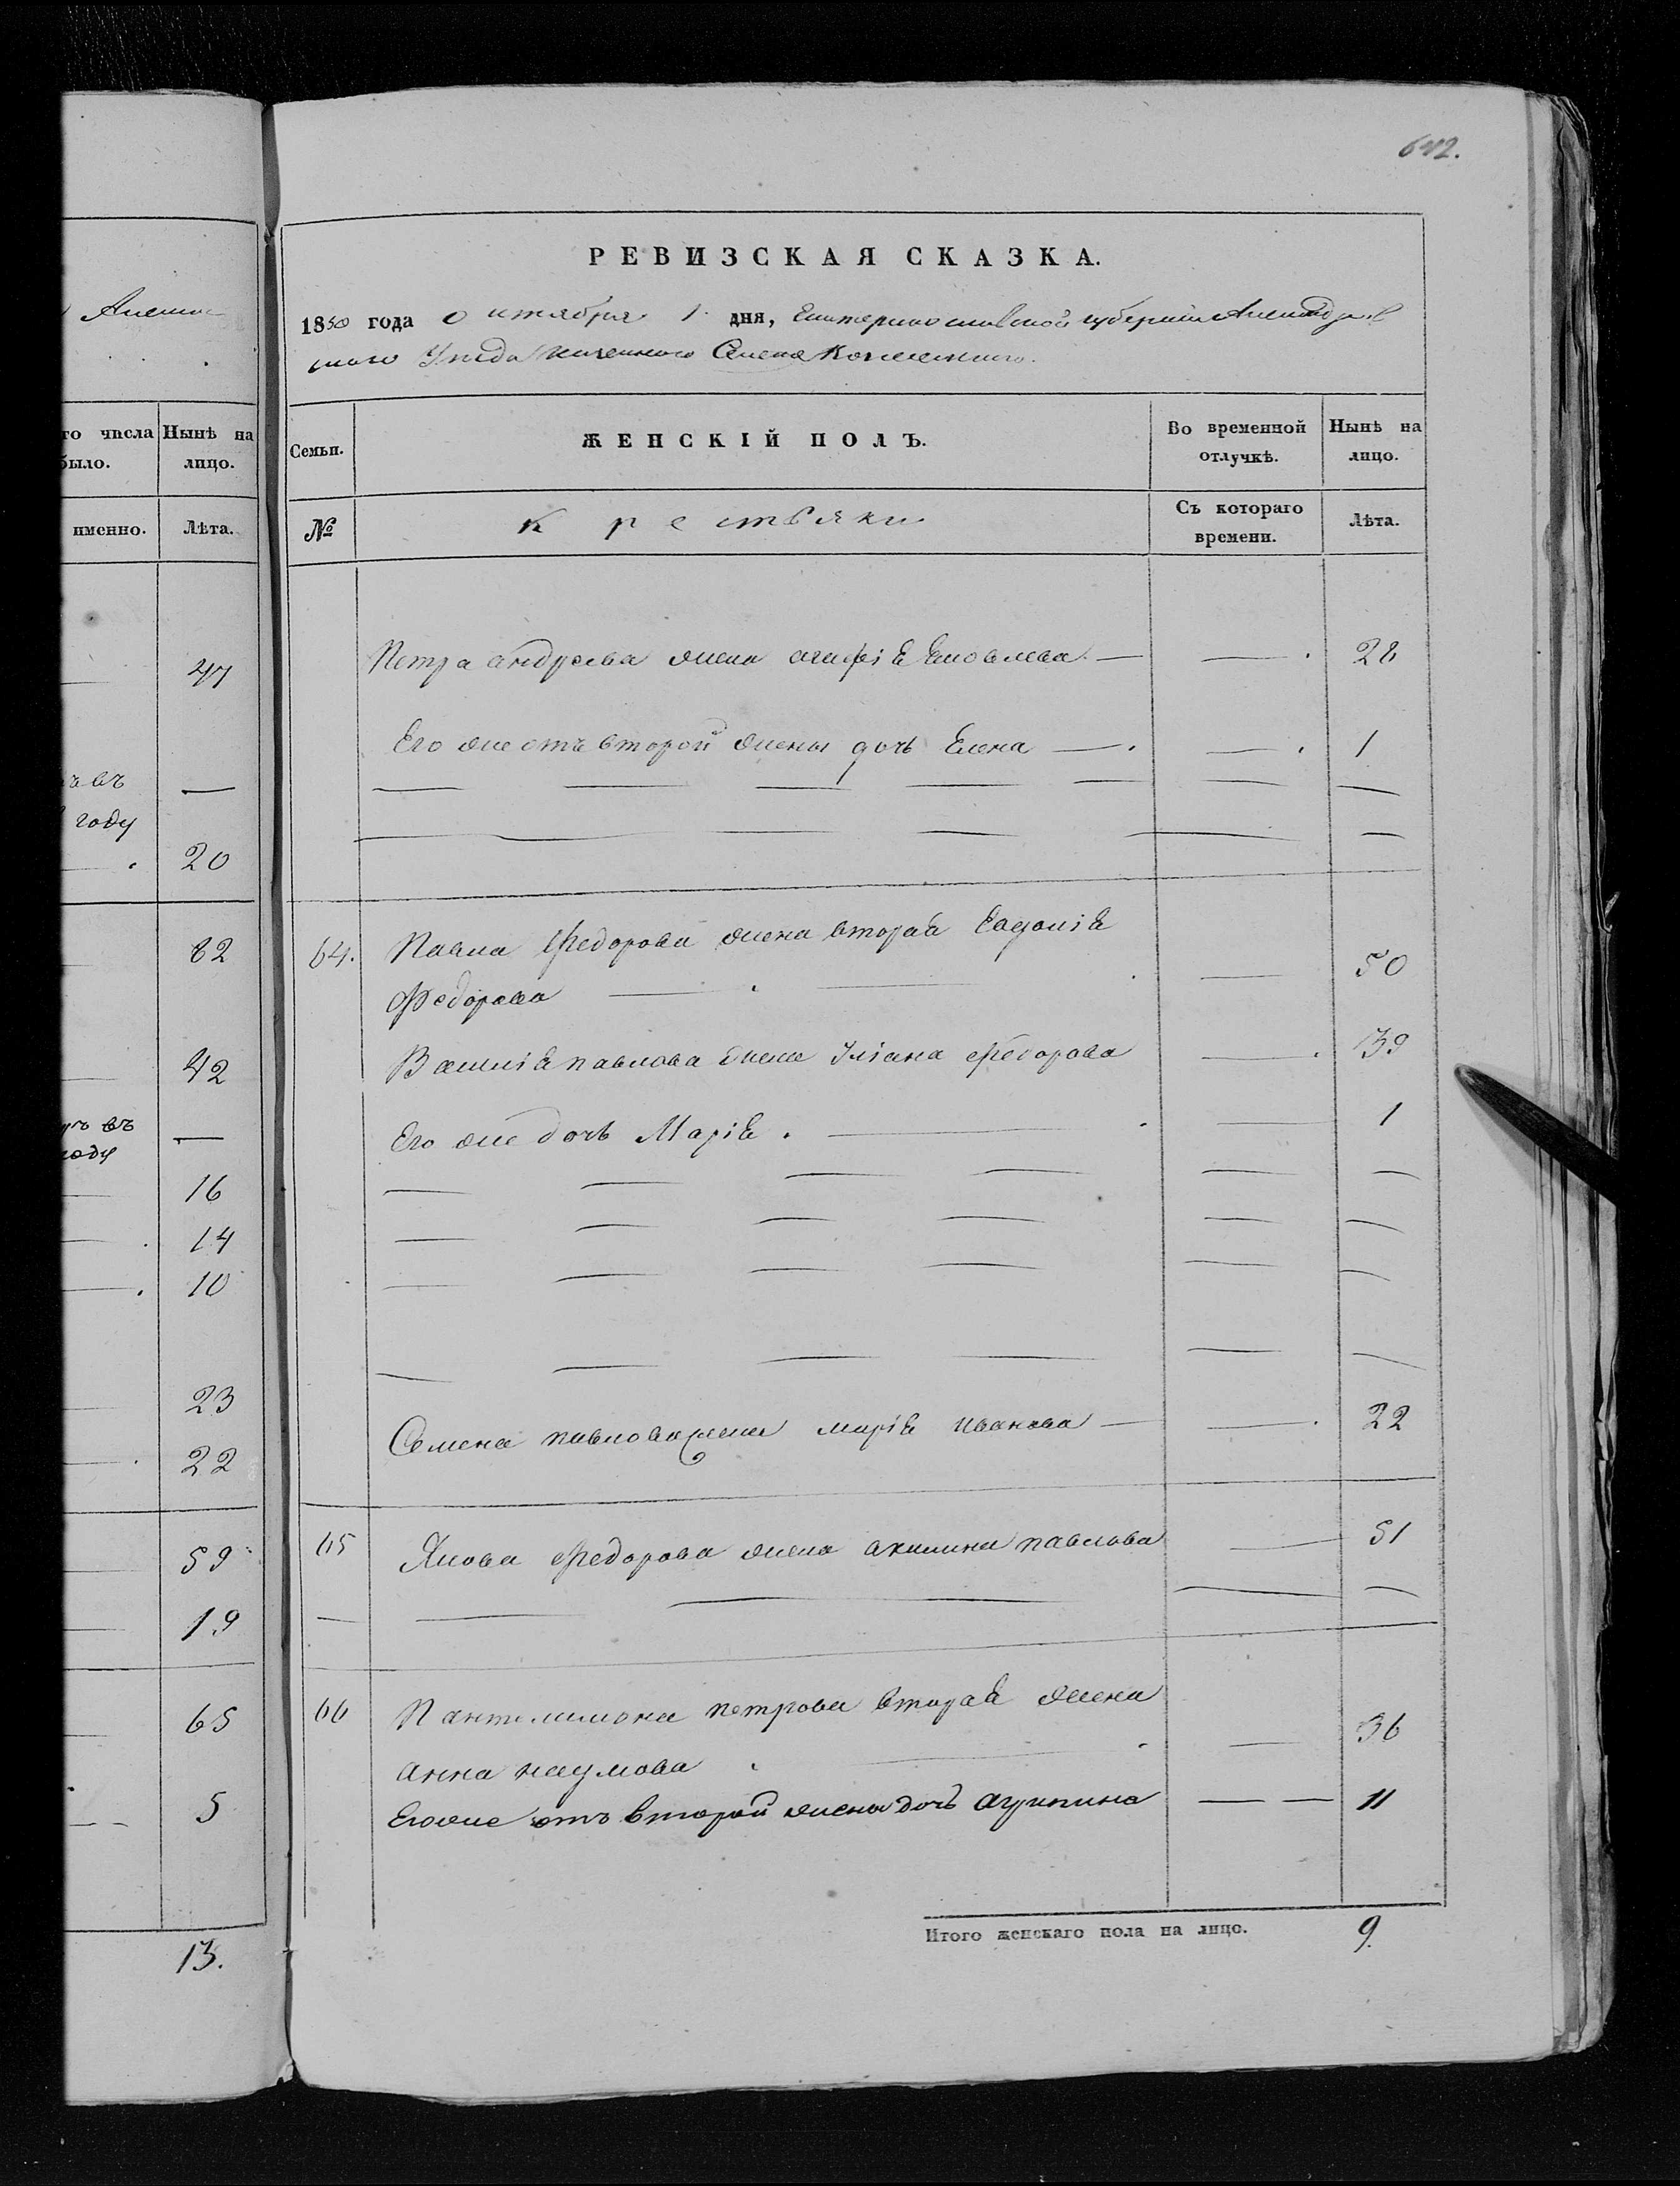 642.
РЕВИЗСКАЯ СКАЗКА.
1850 года октября 1 дня, Екатеринославской губернии Александров
ского Уезда казенного Селена
то числа было. Нынѣ на лицо.
Семьи. ЖЕНСКІЙ ПОЛЪ. Во временной отлучкѣ. Нынѣ на лицо.
именно. Лѣта.
№ Крестьяки Съ котораго времени. Лѣта.
47
Петра андреева жена агафіѣ Яковлева — — 28
Его же отъ второй жены дочь Елена — — 1
въ —
году
20
82
64. Павла Федорова жена вторая Евдокіѣ
Федорова — — 50
42
Василіѣ павлова жена Уліана Федорова — 39
Его же дочь Маріѣ. — — 1
въ —
году
16
14
10
23
22
Семена павлова жена маріѣ иванова — — 22
59
19
65 Якова Федорова жена акилина павлова — 51
65
66 Пантелимона петрова вторая жена
анна наумова — — 36
5
Егоже отъ второй жены дочь агрипина — — 11
Итого женскаго пола на лицо. 9.
13.